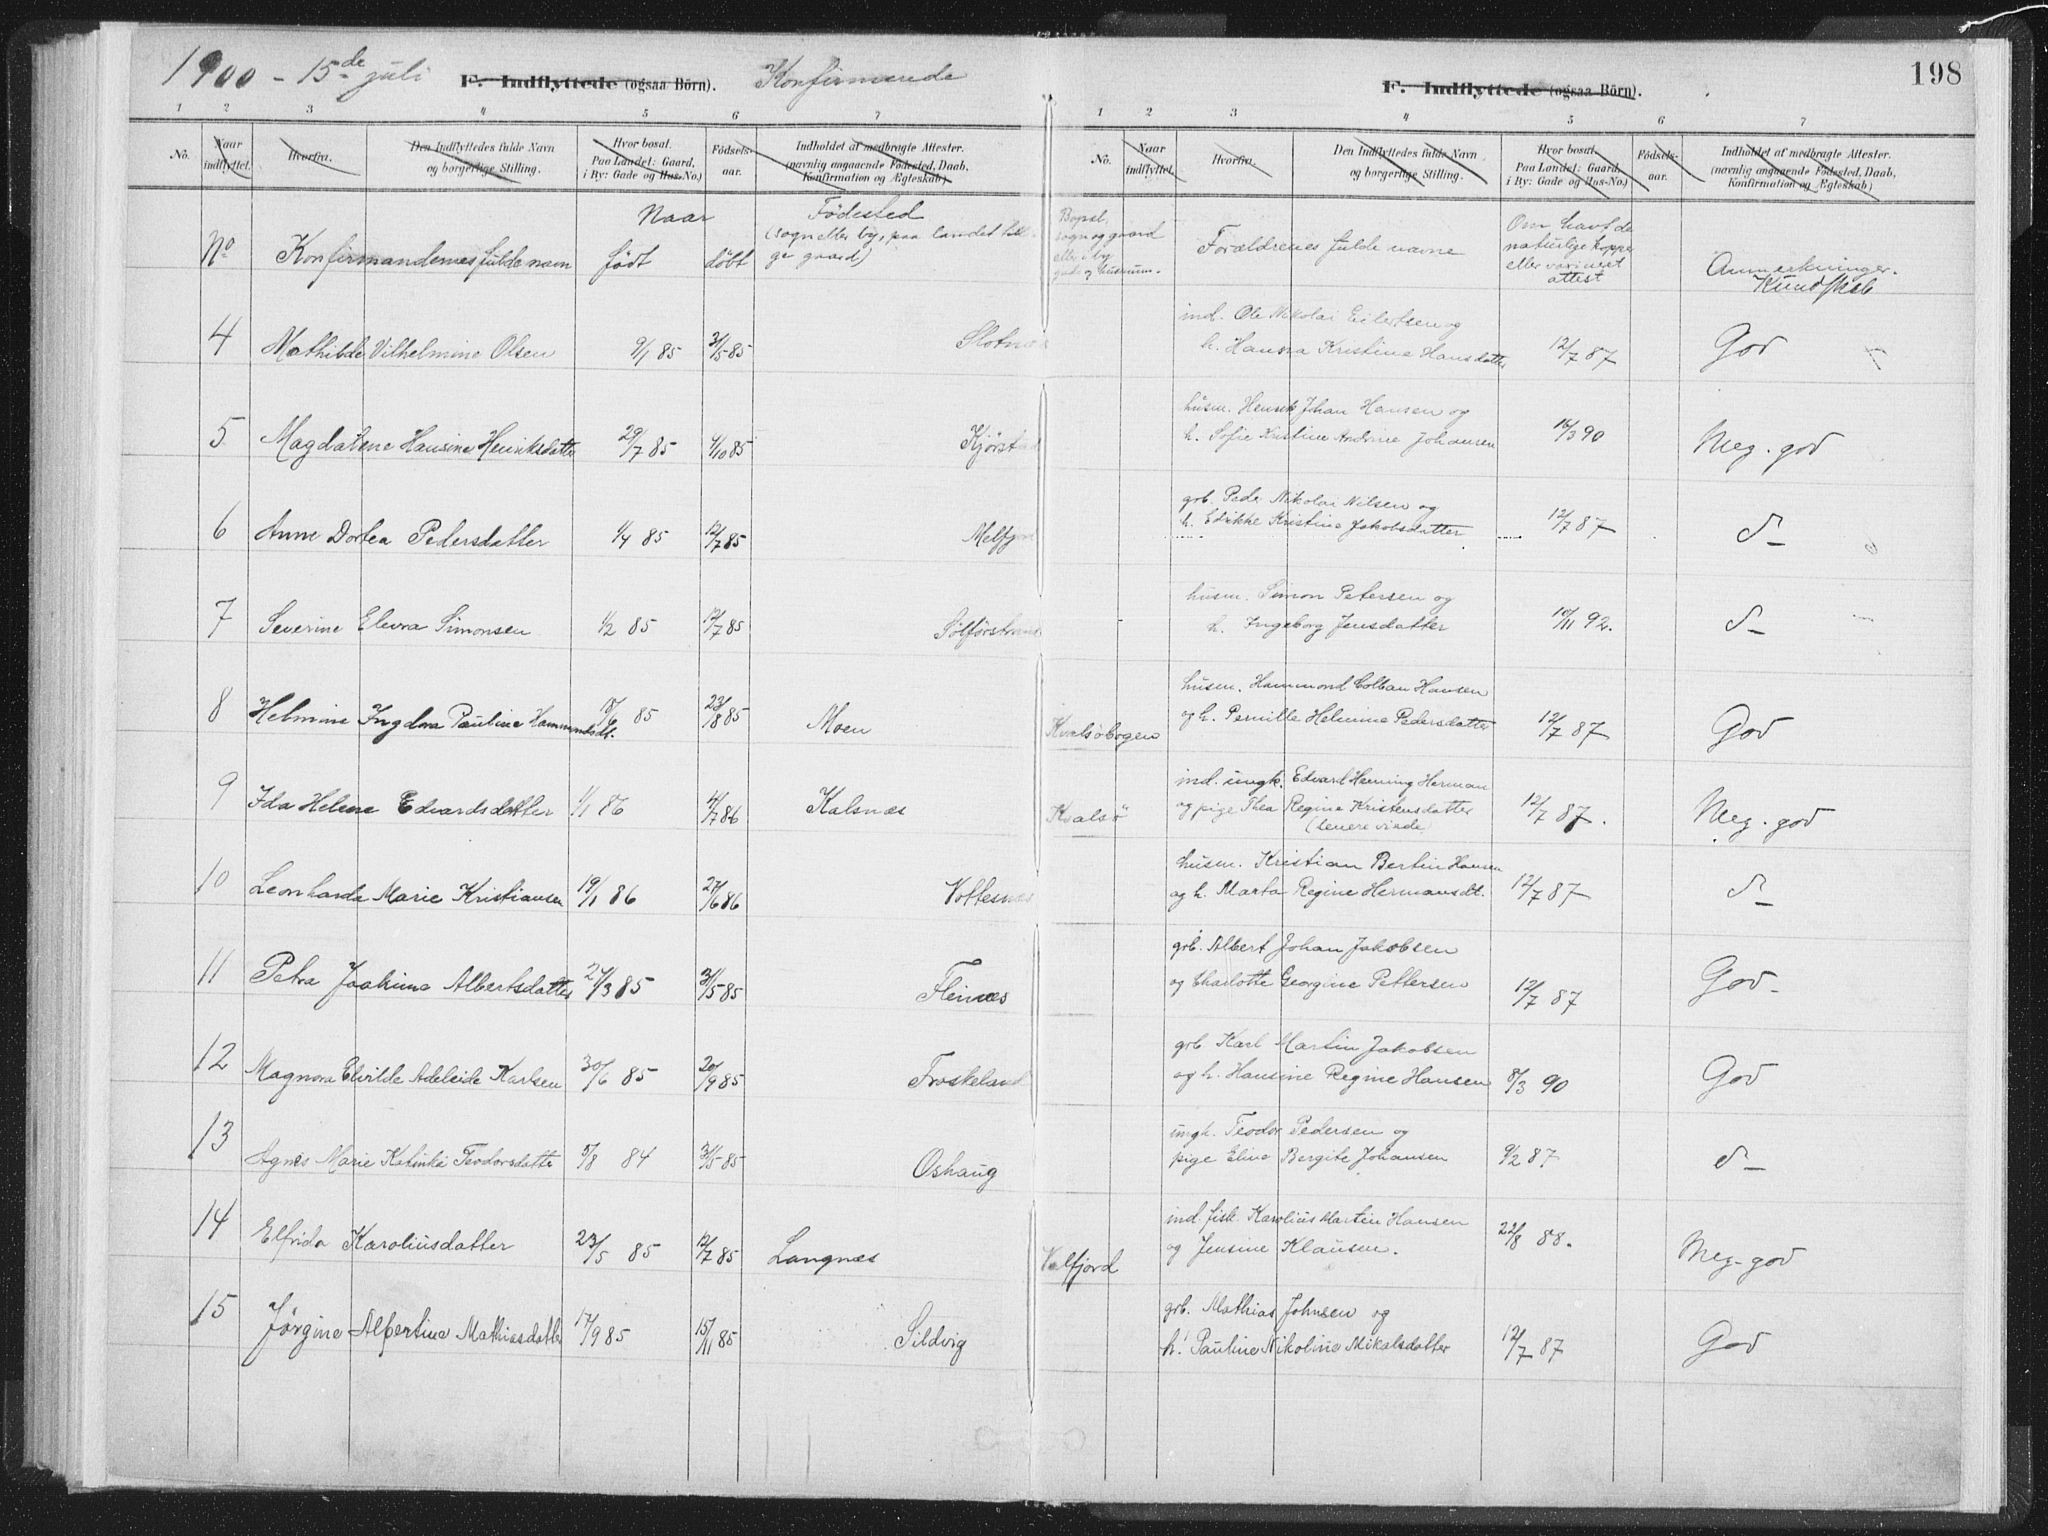 1900 - 15de juli F. Indflyttede (ogsaa Börn). Konfirmerede
F. Indflyttede (ogsaa Börn). 198
1 2 3 4 5 6 7
1 2 3 4 5 6 7
No. Naar indflyttet. Hvorfra. Den Indflyttedes fulde Navn og borgerlige Stilling. Hvor bosat. Paa Landet: Gaard, i By: Gade og Hus-No.) Födsels-aar. Indholdet af medbragte Attester. (navnlig angaaende Födested, Daab, Konfirmation og Ægteskab)
No. Naar indflyttet. Hvorfra. Den Indflyttedes fulde Navn og borgerlige Stilling. Hvor bosat. Paa Landet: Gaard, i By: Gade og Hus-No.) Födsels-aar. Indholdet af medbragte Attester. (navnlig angaaende Födested, Daab, Konfirmation og Ægteskab)
No Konfirmandernes fulde navn Naar født døbt Fødested (sogn eller by, paa landet tillige gaard)
Bopæl, sogn og gaard eller i by gade og husnum. Forældrenes fulde navne Om havt de naturlige kopper eller vaccineret attest Anmerkninger. Kundskab
4 Mathilde Vilhelmine Olsen 9/1 85 31/5 85 Slotnæs
ind. Ole Nikolai Eilertsen og
h. Hanna Kristine Hansdatter 12/7 87 God
5 Magdalene Hansine Henriksdatter 29/7 85 4/10 85 Kjörstad
husm. Henrik Johan Hansen og
h. Sofie Kristine Andrine Johansen 16/3 90 Meg. god
6 Anne Dortea Pedersdatter 1/4 85 12/7 85 Melfjord
grb. Peder Nikolai Nilsen og
h. Edrikke Kristine Jakobsdatter 12/7 87 d-
7 Severine Elevra Simonsen 1/2 85 12/7 85 Sölförstrand
husm. Simon Petersen og
h. Ingeborg Jensdatter 10/11 92. d-
8 Helmine Ingdora Pauline Hammondsdt. 18/6 85 23/8 85 Moen Kvalsöbogen
husm. Hammond Colban Hansen
og h. Pernille Helmine Pedersdatter 12/7 87 God
9 Ida Helene Edvardsdatter 1/1 86 4/7 86 Kalsnæs Kvalsö
ind. ungk. Edvard Henning Herman
og pige Thea Regine Kristensdatter 12/7 87. Meg. god
10 Leonharda Marie Kristiansen 19/1 86 27/6 86 Voltesnæs
husm. Kristian Bertin Hansen
og h. Marta Regine Hermansdt. 12/7 87 d-
11 Petra Joakime Albertsdatter 27/3 85 31/5 85 Fleinæs
grb. Albert Johan Jakobsen
og Charlotte Georgine Pettersen 12/7 87 God-
12 Magnora Elvilde Adeleide Karlsen 30/6 85 20/9 85 Froskeland
grb. Karl Martin Jakobsen
og h. Hansine Regine Hansen 8/3 90 God
13 Agnes Marie Katinka Teodorsdatter 5/8 84 31/5 85 Oshaug
ungk. Teodor Pedersen og
pige Eline Bergite Johansen 9/2 87 d-
14 Elfrida Karoliusdatter 23/5 85 12/7 85 Langnæs Valfjord
ind. fisk. Karolius Martin Hansen
og Jensine Klausen. 22/8 88. Meg-god
15 Jørgine Albertine Mathiasdatter 17/9 85 15/11 85 Sildvig
grb. Mathias Johnsen og
h. Pauline Nikoline Mikalsdatter 12/7 87 God